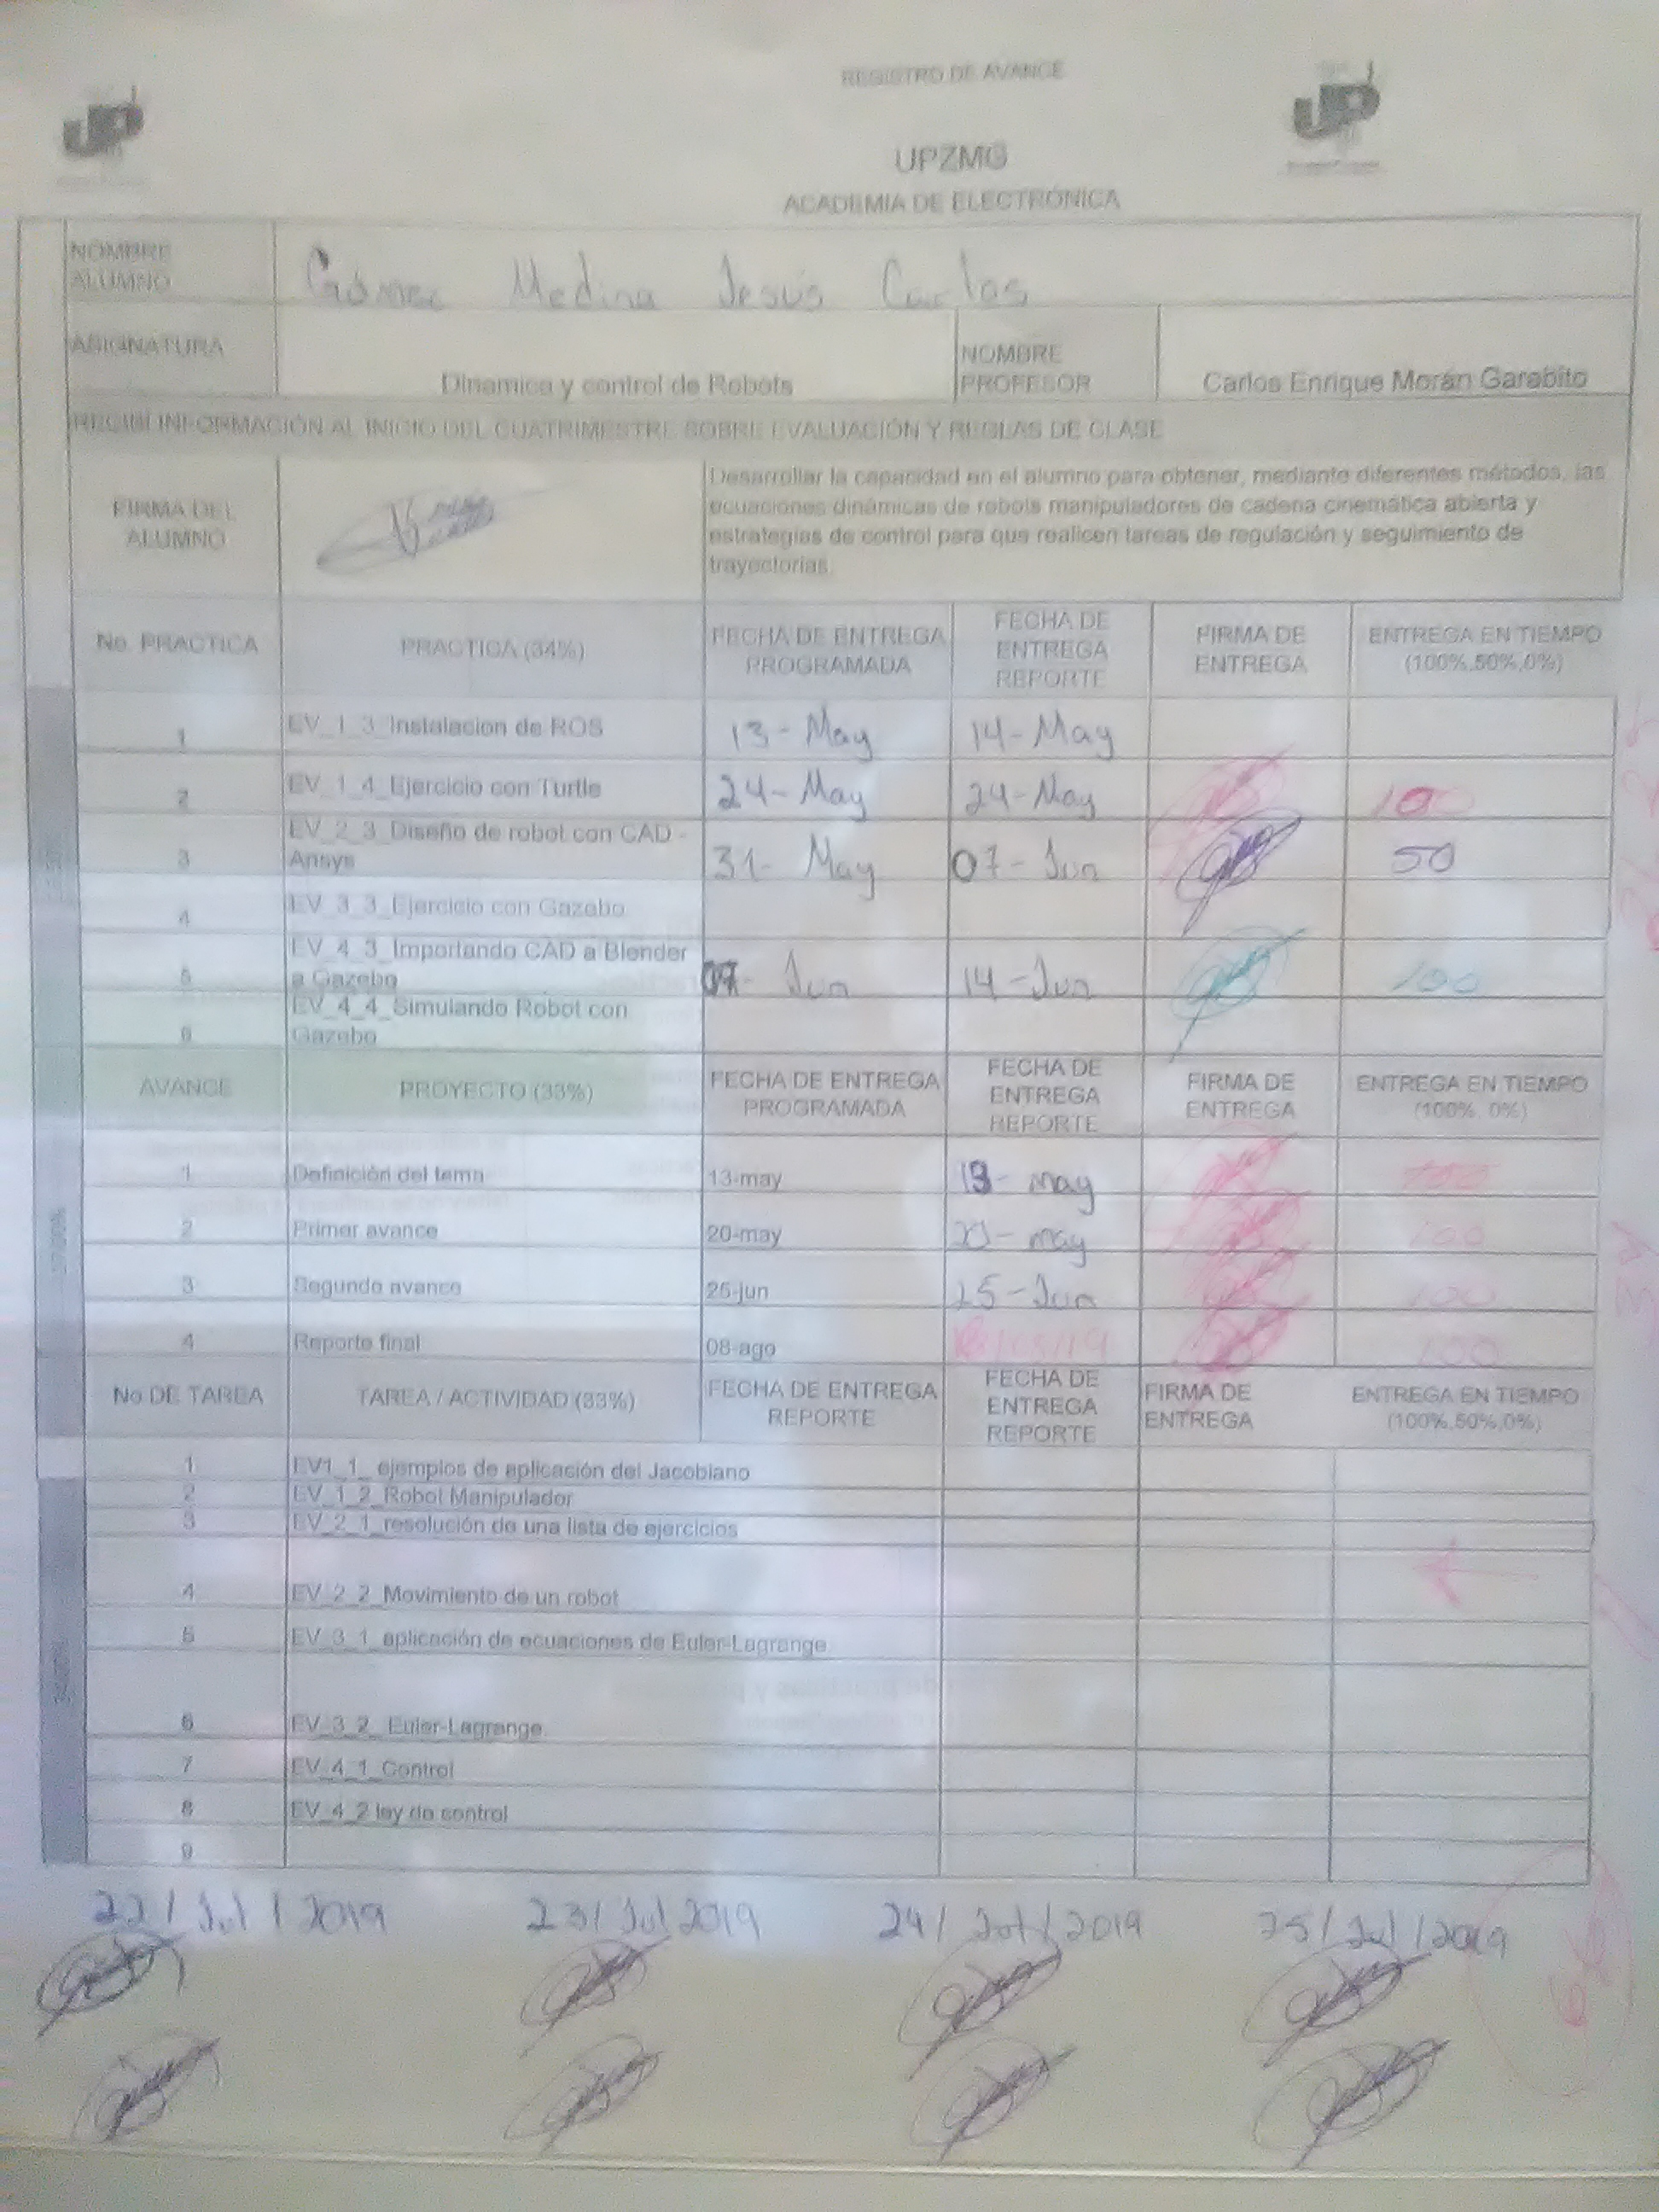 REGISTRO DE AVANCE
UP UP
UPZMG
ACADEMIA DE ELECTRÓNICA
NOMBRE ALUMNO Gómez Medina Jesús Carlos
ASIGNATURA Dinamica y control de Robots NOMBRE PROFESOR Carlos Enrique Morán Garabito
RECIBI INFORMACIÓN AL INICIO DEL CUATRIMESTRE SOBRE EVALUACIÓN Y REGLAS DE CLASE
FIRMA DEL ALUMNO
Desarrollar la capacidad en el alumno para obtener, mediante diferentes métodos, las
ecuaciones dinámicas de robots manipuladores de cadena cinemática abierta y
estrategias de control para que realicen tareas de regulación y seguimiento de
trayectorias.
No. PRACTICA PRACTICA (34%) FECHA DE ENTREGA PROGRAMADA FECHA DE ENTREGA REPORTE FIRMA DE ENTREGA ENTREGA EN TIEMPO (100%,50%,0%)
1 EV_1_3_Instalacion de ROS 13-May 14-May
2 EV_1_4_Ejercicio con Turtle 24-May 24-May 100
3 EV_2_3_Diseño de robot con CAD - Ansys 31-May 07-Jun 50
4 EV_3_3_Ejercicio con Gazebo
5 EV_4_3_Importando CAD a Blender a Gazebo 07-Jun 14-Jun 100
6 EV_4_4_Simulando Robot con Gazebo
AVANCE PROYECTO (33%) FECHA DE ENTREGA PROGRAMADA FECHA DE ENTREGA REPORTE FIRMA DE ENTREGA ENTREGA EN TIEMPO (100%, 0%)
1 Definición del tema 13-may 13-may 100
2 Primer avance 20-may may 100
3 Segundo avance 25-jun 25-Jun 100
4 Reporte final 08-ago 100
No DE TAREA TAREA / ACTIVIDAD (33%) FECHA DE ENTREGA REPORTE FECHA DE ENTREGA REPORTE FIRMA DE ENTREGA ENTREGA EN TIEMPO (100%,50%,0%)
1 EV1_1_ ejemplos de aplicación del Jacobiano
2 EV_1_2_Robot Manipulador
3 EV_2_1_resolución de una lista de ejercicios
4 EV_2_2_Movimiento de un robot
5 EV_3_1_aplicación de ecuaciones de Euler-Lagrange
6 EV_3_2_ Euler-Lagrange.
7 EV_4_1_Control
8 EV_4_2 ley de control
9
22/Jul/2019 23/Jul/2019 24/Jul/2019 25/Jul/2019